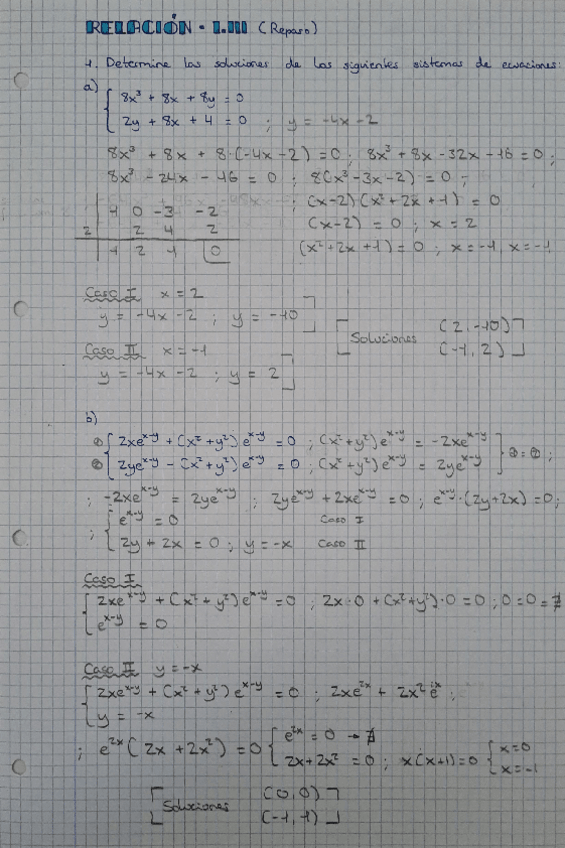 RELACIÓN - I.III (Repaso)
1. Determine las soluciones de los siguientes sistemas de ecuaciones:
a) { 8x³ + 8x + 8y = 0
2y + 8x + 4 = 0 ; y = -4x - 2
8x³ + 8x + 8·(-4x - 2) = 0 ; 8x³ + 8x - 32x - 16 = 0 ;
8x³ - 24x - 16 = 0 ; 8(x³ - 3x - 2) = 0 ;
; (x-2)(x² + 2x + 1) = 0
1 0 -3 -2
(x-2) = 0 ; x = 2
2 | 2 4 2
1 2 1 0
(x² + 2x + 1) = 0 ; x = -1, x = -1
Caso I x = 2
y = -4x - 2 ; y = -10
Caso II x = -1
y = -4x - 2 ; y = 2
[Soluciones (2, -10)
(-1, 2)]
b)
① { 2xe^(x-y) + (x² + y²)e^(x-y) = 0 ; (x² + y²)e^(x-y) = -2xe^(x-y)
② 2ye^(x-y) - (x² + y²)e^(x-y) = 0 ; (x² + y²)e^(x-y) = 2ye^(x-y) } ① = ② ;
; -2xe^(x-y) = 2ye^(x-y) ; 2ye^(x-y) + 2xe^(x-y) = 0 ; e^(x-y)·(2y + 2x) = 0 ;
; { e^(x-y) = 0 Caso I
2y + 2x = 0 ; y = -x Caso II
Caso I
{ 2xe^(x-y) + (x² + y²)e^(x-y) = 0 ; 2x·0 + (x² + y²)·0 = 0 ; 0 = 0 = ∄
e^(x-y) = 0
Caso II y = -x
{ 2xe^(x-y) + (x² + y²)e^(x-y) = 0 ; 2xe^(2x) + 2x²e^(2x) ;
y = -x
; e^(2x)(2x + 2x²) = 0 { e^(2x) = 0 → ∄
2x + 2x² = 0 ; x(x+1) = 0 { x = 0
x = -1
[Soluciones (0, 0)
(-1, 1)]